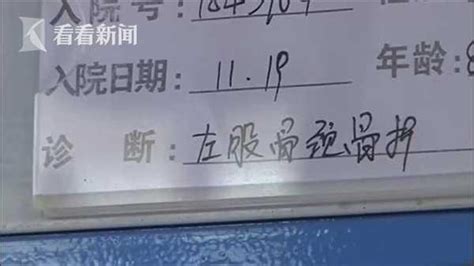 看看新闻
入院号:
入院日期: 11.19 年龄:
诊 断: 左股骨颈骨折